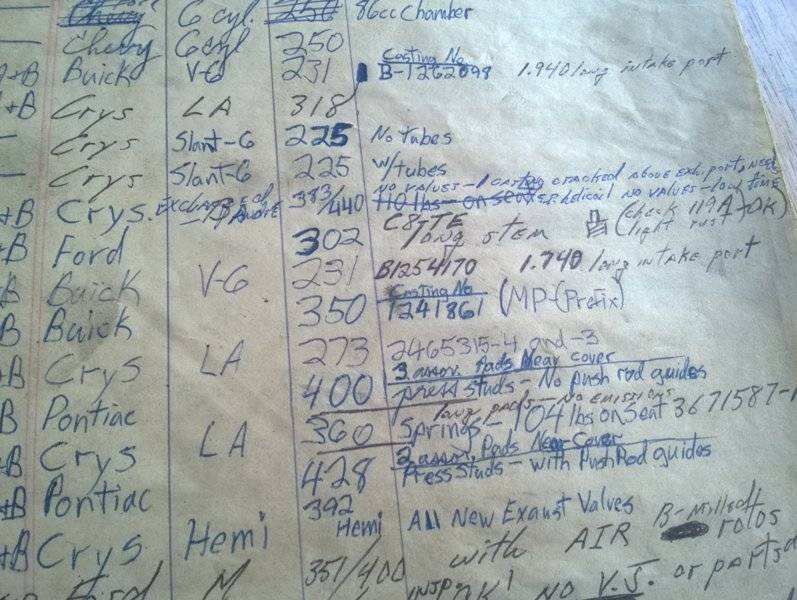 Chevy 6 cyl. 250 86cc Chamber
Chevy 6 cyl 250
Casting No
+B Buick V-6 231 B-1262098 1.940 long intake port
+B Crys LA 318
Crys Slant-6 225 No tubes
Crys Slant-6 225 w/tubes
NO VALVES - 1 casting cracked above exh. port, need
+B Crys. 383/440 110 lbs - on seat helicoil NO VALVES - long time
B Ford 302 C8TE long stem (check 119A + OK) light rust
B Buick V-6 231 B1254170 1.740 long intake port
Casting No
B Buick 350 1241861 (MP-(Prefix)
+B Crys LA 273 2465315-4 and -3
3 assor. Pads Near cover
B Pontiac 400 press studs - No push rod guides
long pads - NO EMISSIONS
+B Crys LA 360 Springs - 104 lbs on Seat 3671587-1
2 assor. Pads Near Cover
+B Pontiac 428 Press Studs - with Push Rod guides
+B Crys Hemi 392 Hemi All New Exaust Valves
Ford M 351/400 with AIR B-
INSP. OK! NO V.J. or parts